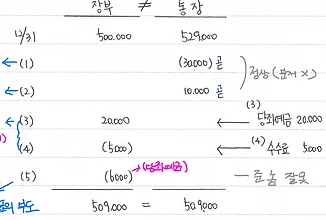 장부 ≠ 통장
12/31 500.000 529.000
← (1) (30.000) 곧 정상 (문제 X)
← (2) 10.000 곧
(3)
← (3) 20.000 ← 당좌예금 20.000
(4) (5.000) ← (4) 수수료 5.000
(5) (6000) → (당좌예금) - 준 놈 잘못
부도 509.000 = 509.000